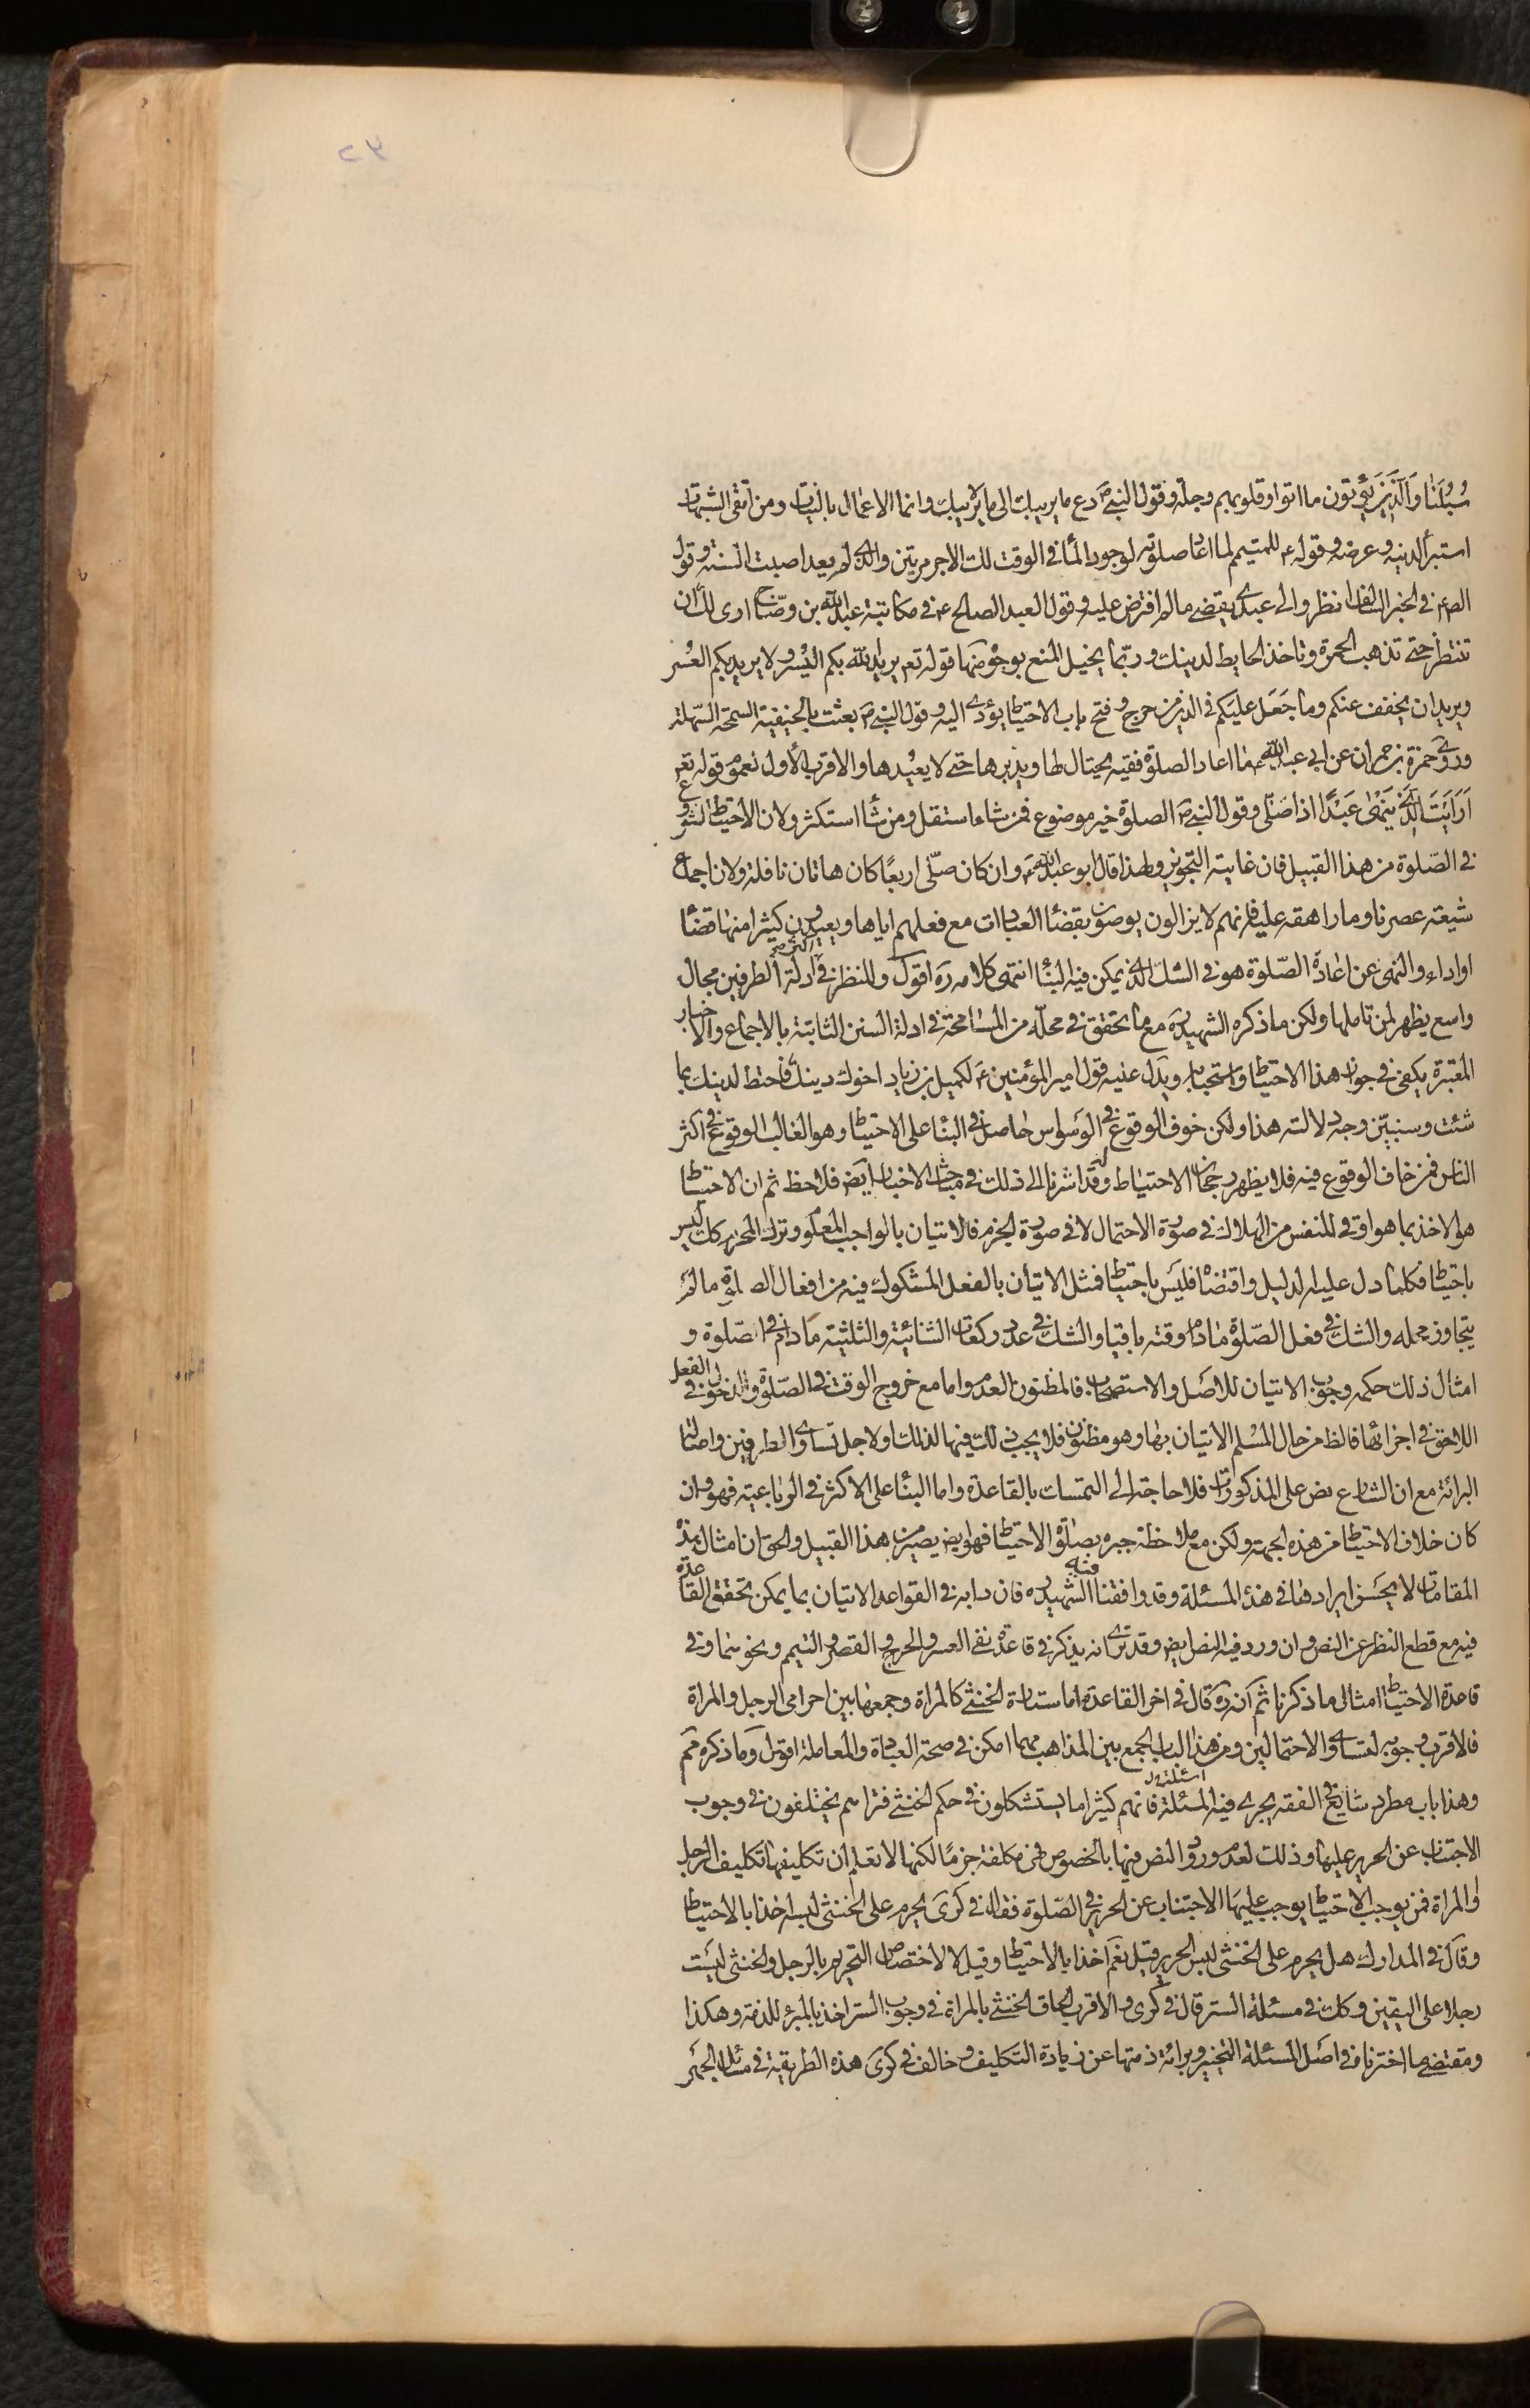 ٣٢
سُبُلَنا وَالَّذینَ یُؤتون ما اتوا وقلوبهم وجلة وقول النبی ص دع ما یریبك الی ما لا یریبك وانما الاعمال بالنیات ومن اتقی الشبهات
استبرأ لدینه وعرضه وقوله ع للمتیمم لما اعاد صلوته لوجود الماء فی الوقت لك الاجر مرتین والذی لم یعد اصبت السنة وقول
الص ع فی الخبر السالف انظروا الی عبدی یقضی مالم افترض علیه وقول العبد الصالح ع فی مکاتبة عبدالله بن وضاح اری لك ان
تنتظر حتی تذهب الحمرة وتاخذ الحایط لدینك وربما یخیل المنع بوجوه منها قوله تع یرید الله بکم الیُسر ولا یرید بکم العُسر
ویرید ان یخفف عنکم وما جَعَل علیکم فی الدین من حرج وفتح باب الاحتیاط یؤدی الیه وقول النبی ص بعثت بالحنیفیة السمحة السهلة
وروی حمزة بن حمران عن ابی عبدالله ع ما اعاد الصلوة فقیه یحتال لها ویدبرها حتی لا یعیدها والاقرب الاول لعموم قوله تع
اَرَاَیْتَ الَّذی یَنهی عَبْدًا اذا صَلّی وقول النبی ص الصلوة خیر موضوع فمن شاء استقل ومن شاء استکثر ولان الاحتیاط المشروع
فی الصّلوة من هذا القبیل فان غایته التجویز ولهذا قال ابو عبدالله ع وان کان صلّی اربعًا کان هاتان نافلة ولان اجماع
شیعة عصرنا وما راهقه علیه فانهم لا یزالون یوصون بقضاء العبادات مع فعلهم ایاها ویعیدون کثیرا منها قضاء
اواداء والنهی عن اعادة الصّلوة هو فی الشك الذی یمکن فیه البناء انتهی کلامه ره اقول وللنظر فی اکثر ادلة الطرفین مجال
واسع یظهر لمن تاملها ولکن ما ذکره الشهید ره مع ما تحقق فی محلّه من المسامحة فی ادلة السنن الثابتة بالاجماع والاخبار
المعتبرة یکفی فی جواز هذا الاحتیاط واستحبابه ویدل علیه قول امیر المؤمنین ع لکمیل بن زیاد اخوك دینك فاحتط لدینك بما
شئت وسنبیّن وجه دلالته هذا ولکن خوف الوقوع فی الوَسواس حاصل فی البناء علی الاحتیاط وهو الغالب الوقوع فی اکثر
الناس فمن خاف الوقوع فیه فلا یظهر رجحان الاحتیاط له وقد اشرنا الی ذلك فی مباحث الاخبار ایض فلاحظ ثم ان الاحتیاط
هو الاخذ بما هو اوقی للنفس من الهلاك فی صورة الاحتمال لا فی صورة الجزم فالاتیان بالواجب المعلوم وترك المحرم کك لیس
باحتیاط فکلما دل علیه الدلیل واقتضاه فلیَس باحتیاط فمثل الاتیان بالفعل المشکوك فیه من افعال الصلوة ما لم
یتجاوز محله والشك فی فعل الصّلوة ما دام وقته باقیا والشك فی عدد رکعات الثنائیة والثلثیة ما دام فی الصّلوة و
امثال ذلك حکمه وجوب الاتیان للاصَل والاستصحاب فالمظنون العدم واما مع خروج الوقت فی الصّلوة والدخول فی الفعل
اللاحق فی اجزائها فالظ من حال المُسلم الاتیان بها وهو مظنون فلا یجب ذلك فیها لذلك او لاجل تساوی الطرفین واصالة
البرائة مع ان الشارع نص علی المذکورات فلا حاجة الی التمسك بالقاعدة واما البناء علی الاکثر فی الرباعیة فهو وان
کان خلاف الاحتیاط من هذه الجهة ولکن مع ملاحظة جبره بصلوة الاحتیاط فهو ایض یصیر من هذا القبیل والحق ان امثال هذه
المقامات لا یحسَن ایرادها فی هذه المسئلة وقد وافقنا فیه الشهید ره فان دابه فی القواعد الاتیان بما یمکن تحقق القاعدة
فیه مع قطع النظر عن النص وان ورد فیه النص ایض وقد تری انه یذکر فی قاعدة نفی العسر والحرج القصر والتیمم ونحوهما وفی
قاعدة الاحتیاط امثال ما ذکرنا ثم انه ره قال فی اخر القاعدة اما ستارة الخنثی کالمراة وجمعها بین احرامی الرجل والمراة
فالاقرب وجوبه لتساوی الاحتمالین ومن هذا الباب الجمع بین المذاهب مهما امکن فی صحة العبادة والمعاملة اقول وما ذکره مم
وهذا باب مطرد شایع فی الفقه یجری فیه اسئلة المسئلة فانهم کثیرا ما یستشکلون فی حکم الخنثی فتراهم یختلفون فی وجوب
الاجتناب عن الحریر علیها وذلك لعدم ورود النص فیها بالخصوص فهی مکلفة جزمًا لکنها لا تعلم ان تکلیفها تکلیف الرجل
او المراة فمن یوجب الاحتیاط یوجب علیهَا الاجتناب عن الحریر فی الصّلوة فقال فی کری یحرم علی الخنثی لبسه اخذا بالاحتیاط
وقال فی المدارك هل یحرم علی الخنثی لبس الحریر قیل نعم اخذا بالاحتیاط وقیل لا لاختصاص التحریم بالرجل والخنثی لیسَت
رجلا علی الیقین وکك فی مسئلة الستر قال فی کری والاقرب الحاق الخنثی بالمراة فی وجوب الستر اخذ بالمبرئ للذمة وهکذا
ومقتضی ما اخترناه فی اصَل المسئلة التخییر وبرائة ذمتها عن زیادة التکلیف وخالف فی کری هذه الطریقة فی مسئلة الجهر